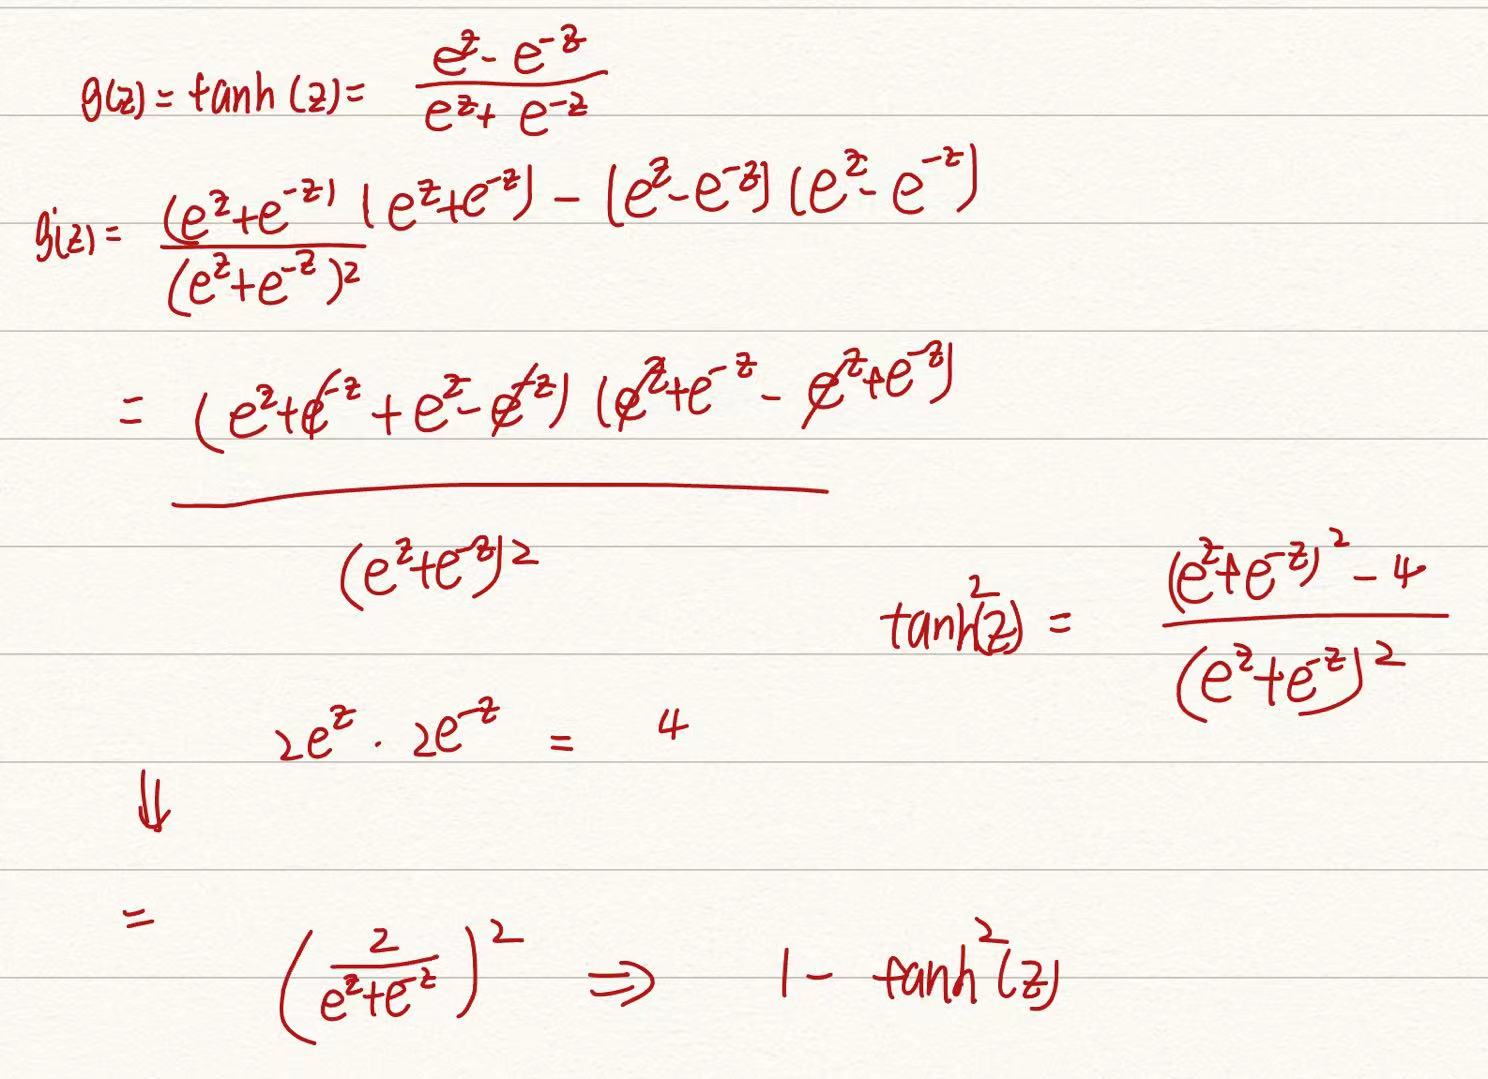 g(z) = tanh (z) = \frac{e^z - e^{-z}}{e^z + e^{-z}}
g'(z) = \frac{(e^z + e^{-z})}{(e^z + e^{-z})^2} (e^z + e^{-z}) - (e^z - e^{-z}) (e^z - e^{-z})
= \frac{(e^z + e^{-z} + e^z - e^{-z}) (e^z + e^{-z} - e^z + e^{-z})}{(e^z + e^{-z})^2}
tanh^2(z) = \frac{(e^z + e^{-z})^2 - 4}{(e^z + e^{-z})^2}
2e^z · 2e^{-z} = 4
⇓
= (\frac{2}{e^z + e^{-z}})^2 ⇒ 1 - tanh^2(z)